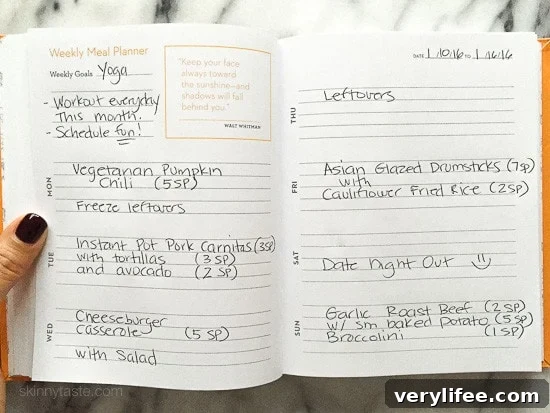 Weekly Meal Planner
Weekly Goals Yoga
- Workout everyday
This month.
- Schedule fun!
"Keep your face
always toward
the sunshine—and
shadows will fall
behind you."
WALT WHITMAN
MON
Vegetarian Pumpkin
Chili (5SP)
Freeze leftovers
TUE
Instant Pot Pork Carnitas (3SP)
with tortillas (3 SP)
and avocado (2 SP)
WED
Cheeseburger
Casserole (5 SP)
with Salad
DATE 1/10/16 TO 1/16/16
THU
Leftovers
FRI
Asian Glazed Drumsticks (7SP)
with
Cauliflower Fried Rice (2SP)
SAT
Date Night Out
SUN
Garlic Roast Beef (2 SP)
w/ sm baked Potato (5 SP)
Broccolini (1 SP)
skinnytaste.com
verylifee.com